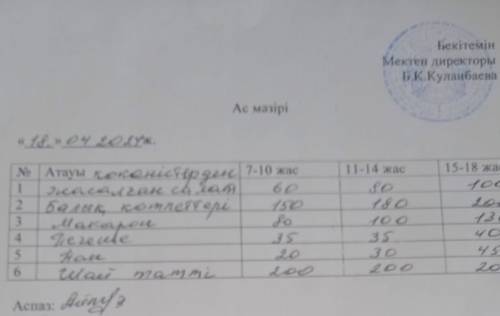 Бекітемін
Мектеп директоры
Б.К.Куланбаева
Ас мәзірі
«18.» 04 2024ж.
№ Атауы көкөністерден 7-10 жас 11-14 жас 15-18 жас
1 жасалған салат 60 80 100
2 балық котлеттері 150 180 20
3 Макарон 80 100 13
4 Печенье 35 35 40
5 Нан 20 30 45
6 Шай тәтті 200 200 20
Аспаз: